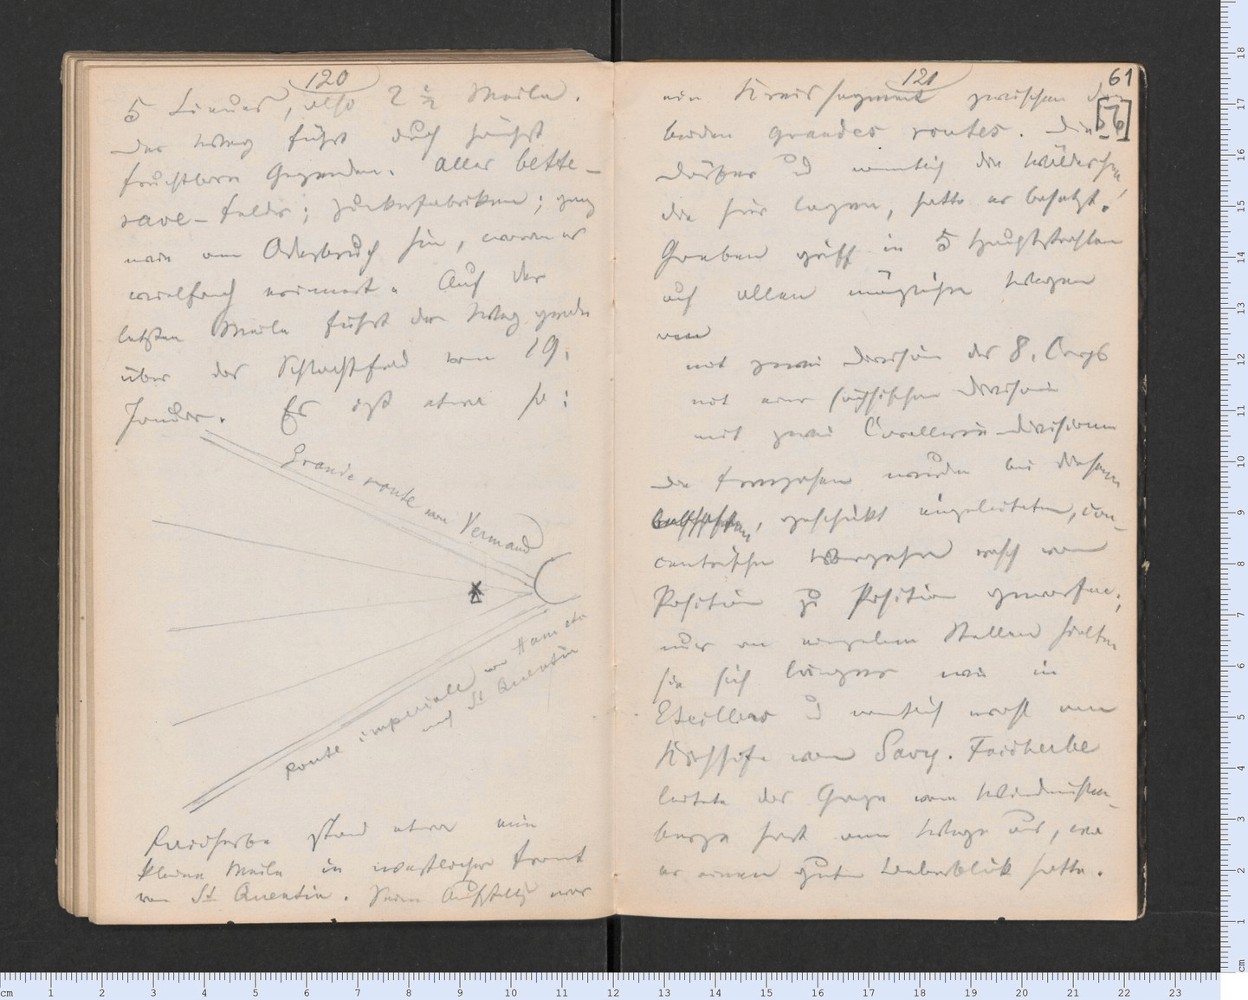 120
5 Lieues, also 2 ½ Meile.
Der Weg führt durch höchst
fruchtbare Gegenden. Alles bette-
rave-Felder; Zuckerfabriken; ganz
wie am Oderbruch hin, woran es
vielfach erinnert. Auf der
letzten Meile führt der Weg grade
über das Schlachtfeld vom 19.
Januar. Es ist etwa so:
Grande route von Vermand
route imperiale von Ham etc
nach St Quentin
Faidherbe stand etwa eine
kleine Meile in westlicher Front
von St Quentin. Seine Aufstellg war
121
61
[56]
ein Kreissegment zwischen den
beiden grandes routes. Die
Dörfer u namentlich die Wäldchen,
die hier lagen, hatte er besetzt.
Goeben griff in 5 Hauptstrahlen
auf allen möglichen Wegen
an
mit zwei Divisionen des 8. Corps
mit einer sächsischen Division
mit zwei Cavallerie-Divisionen
Die Franzosen wurden bei diesem
geschickt eingeleiteten, con-
centrischen Vorgehen rasch von
Position zu Position geworfen;
nur an einzelnen Stellen hielten
sie sich länger wie in
Eteillers u namentlich am
Kirchhofe von Savy. Faidherbe
leitete das Ganze vom Windmühlen-
berge fast am Wege aus, wo
er einen guten Ueberblick hatte.